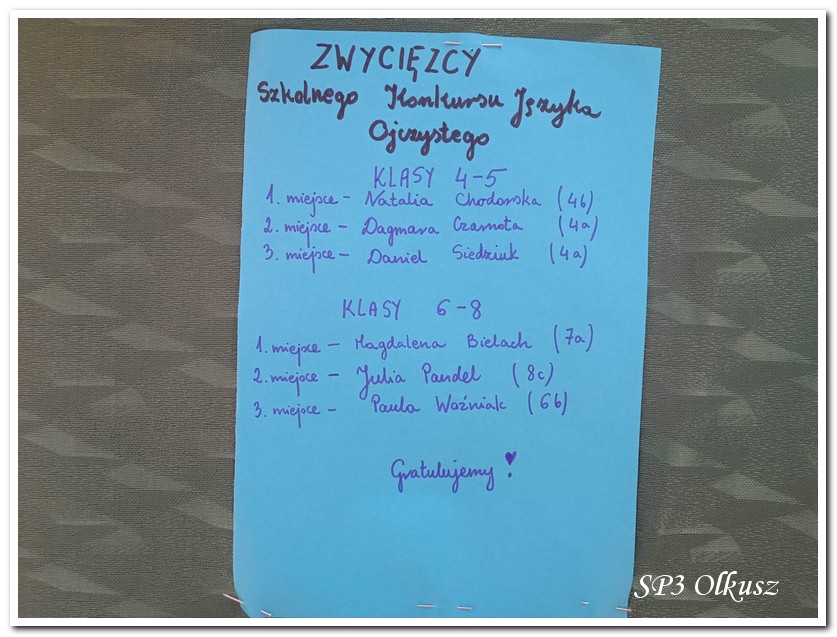 ZWYCIĘZCY
Szkolnego Konkursu Języka
Ojczystego
KLASY 4-5
1. miejsce - Natalia Chodorska (4b)
2. miejsce - Dagmara Czarnota (4a)
3. miejsce - Daniel Siedziuk (4a)
KLASY 6-8
1. miejsce - Magdalena Bielach (7a)
2. miejsce - Julia Pandel (8c)
3. miejsce - Paula Woźniak (6b)
Gratulujemy!
SP3 Olkusz